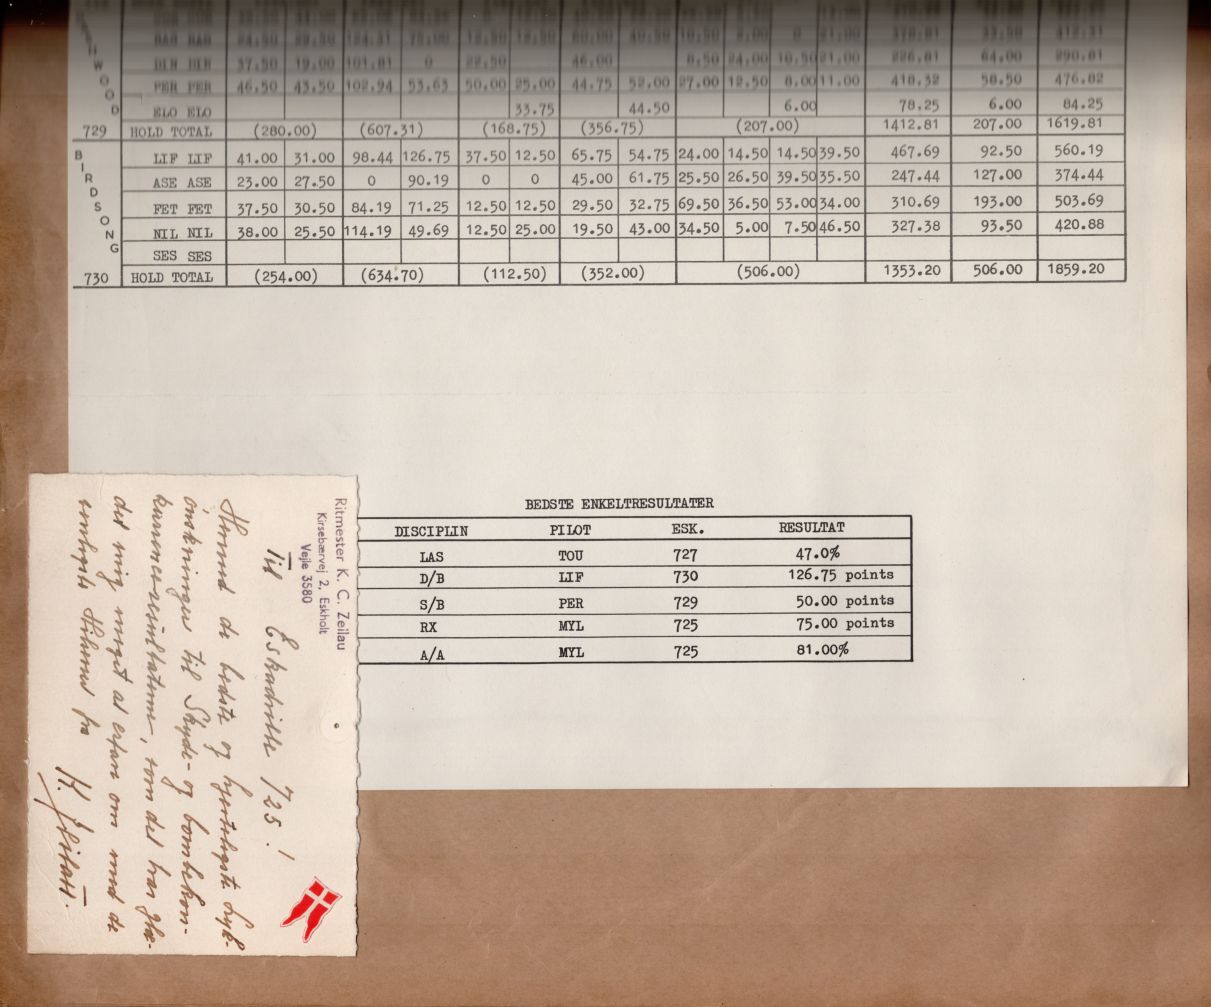 BAS BAS 378.81 33.50 412.31
DIN DIN 37.50 19.00 101.81 0 22.50 46.00 8.50 24.00 10.50 21.00 226.81 64.00 290.81
PER PER 46.50 43.50 102.94 53.63 50.00 25.00 44.75 52.00 27.00 12.50 8.00 11.00 418.32 58.50 476.82
ELO ELO 33.75 44.50 6.00 78.25 6.00 84.25
729 HOLD TOTAL (280.00) (607.31) (168.75) (356.75) (207.00) 1412.81 207.00 1619.81
BIRDSONG
LIF LIF 41.00 31.00 98.44 126.75 37.50 12.50 65.75 54.75 24.00 14.50 14.50 39.50 467.69 92.50 560.19
ASE ASE 23.00 27.50 0 90.19 0 0 45.00 61.75 25.50 26.50 39.50 35.50 247.44 127.00 374.44
FET FET 37.50 30.50 84.19 71.25 12.50 12.50 29.50 32.75 69.50 36.50 53.00 34.00 310.69 193.00 503.69
NIL NIL 38.00 25.50 114.19 49.69 12.50 25.00 19.50 43.00 34.50 5.00 7.50 46.50 327.38 93.50 420.88
SES SES
730 HOLD TOTAL (254.00) (634.70) (112.50) (352.00) (506.00) 1353.20 506.00 1859.20
BEDSTE ENKELTRESULTATER
DISCIPLIN PILOT ESK. RESULTAT
LAS TOU 727 47.0%
D/B LIF 730 126.75 points
S/B PER 729 50.00 points
RX MYL 725 75.00 points
A/A MYL 725 81.00%
Ritmester K. C. Zeilau
Kirsebærvej 2, Eskholt
Vejle 3580
Til Eskadrille 725!
Hermed de bedste og hjerteligste Lyk-
ønskninger til Skyde- og bombekon-
kurrenceresultaterne, som det har glæ-
det mig meget at erfare om med de
venligste Hilsener fra
K. Zeilau.